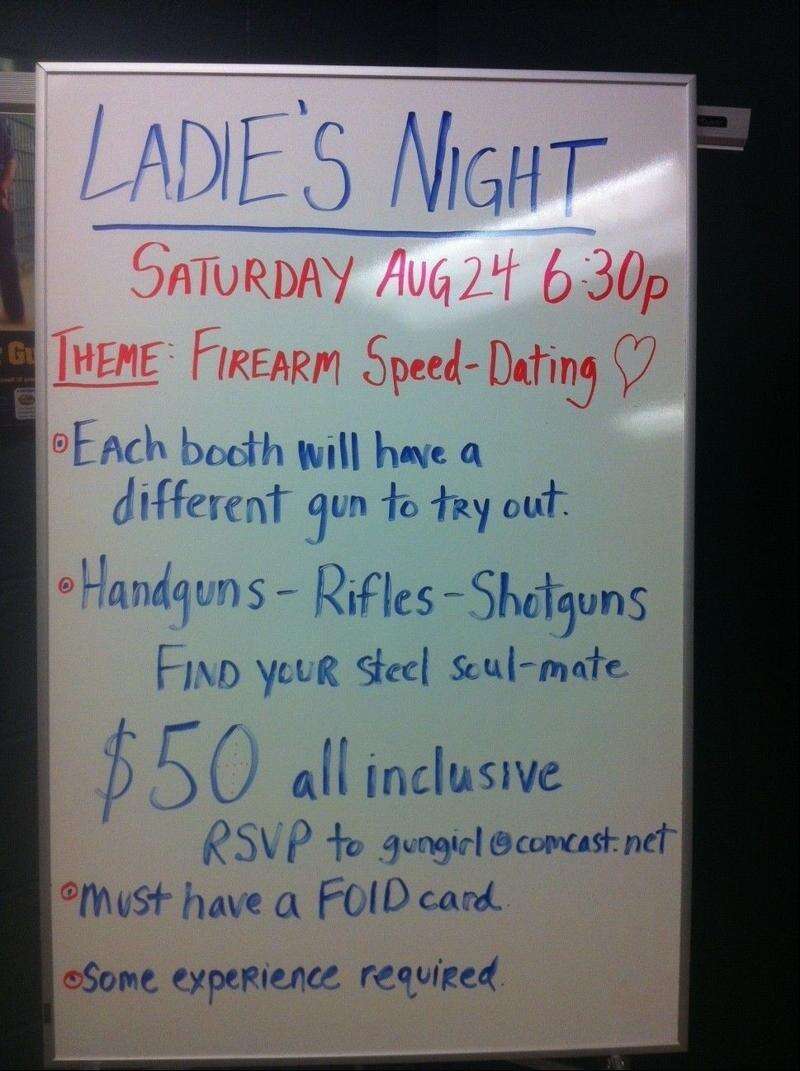 LADIE'S NIGHT
SATURDAY AUG 24 6:30p
THEME: FIREARM Speed-Dating ♡
EACh booth will have a
different gun to TRY out.
Handguns - Rifles - Shotguns
FIND YOUR steel soul-mate
$50 all inclusive
RSVP to gungirl@comcast.net
must have a FOID card.
Some expeRience requiRed.